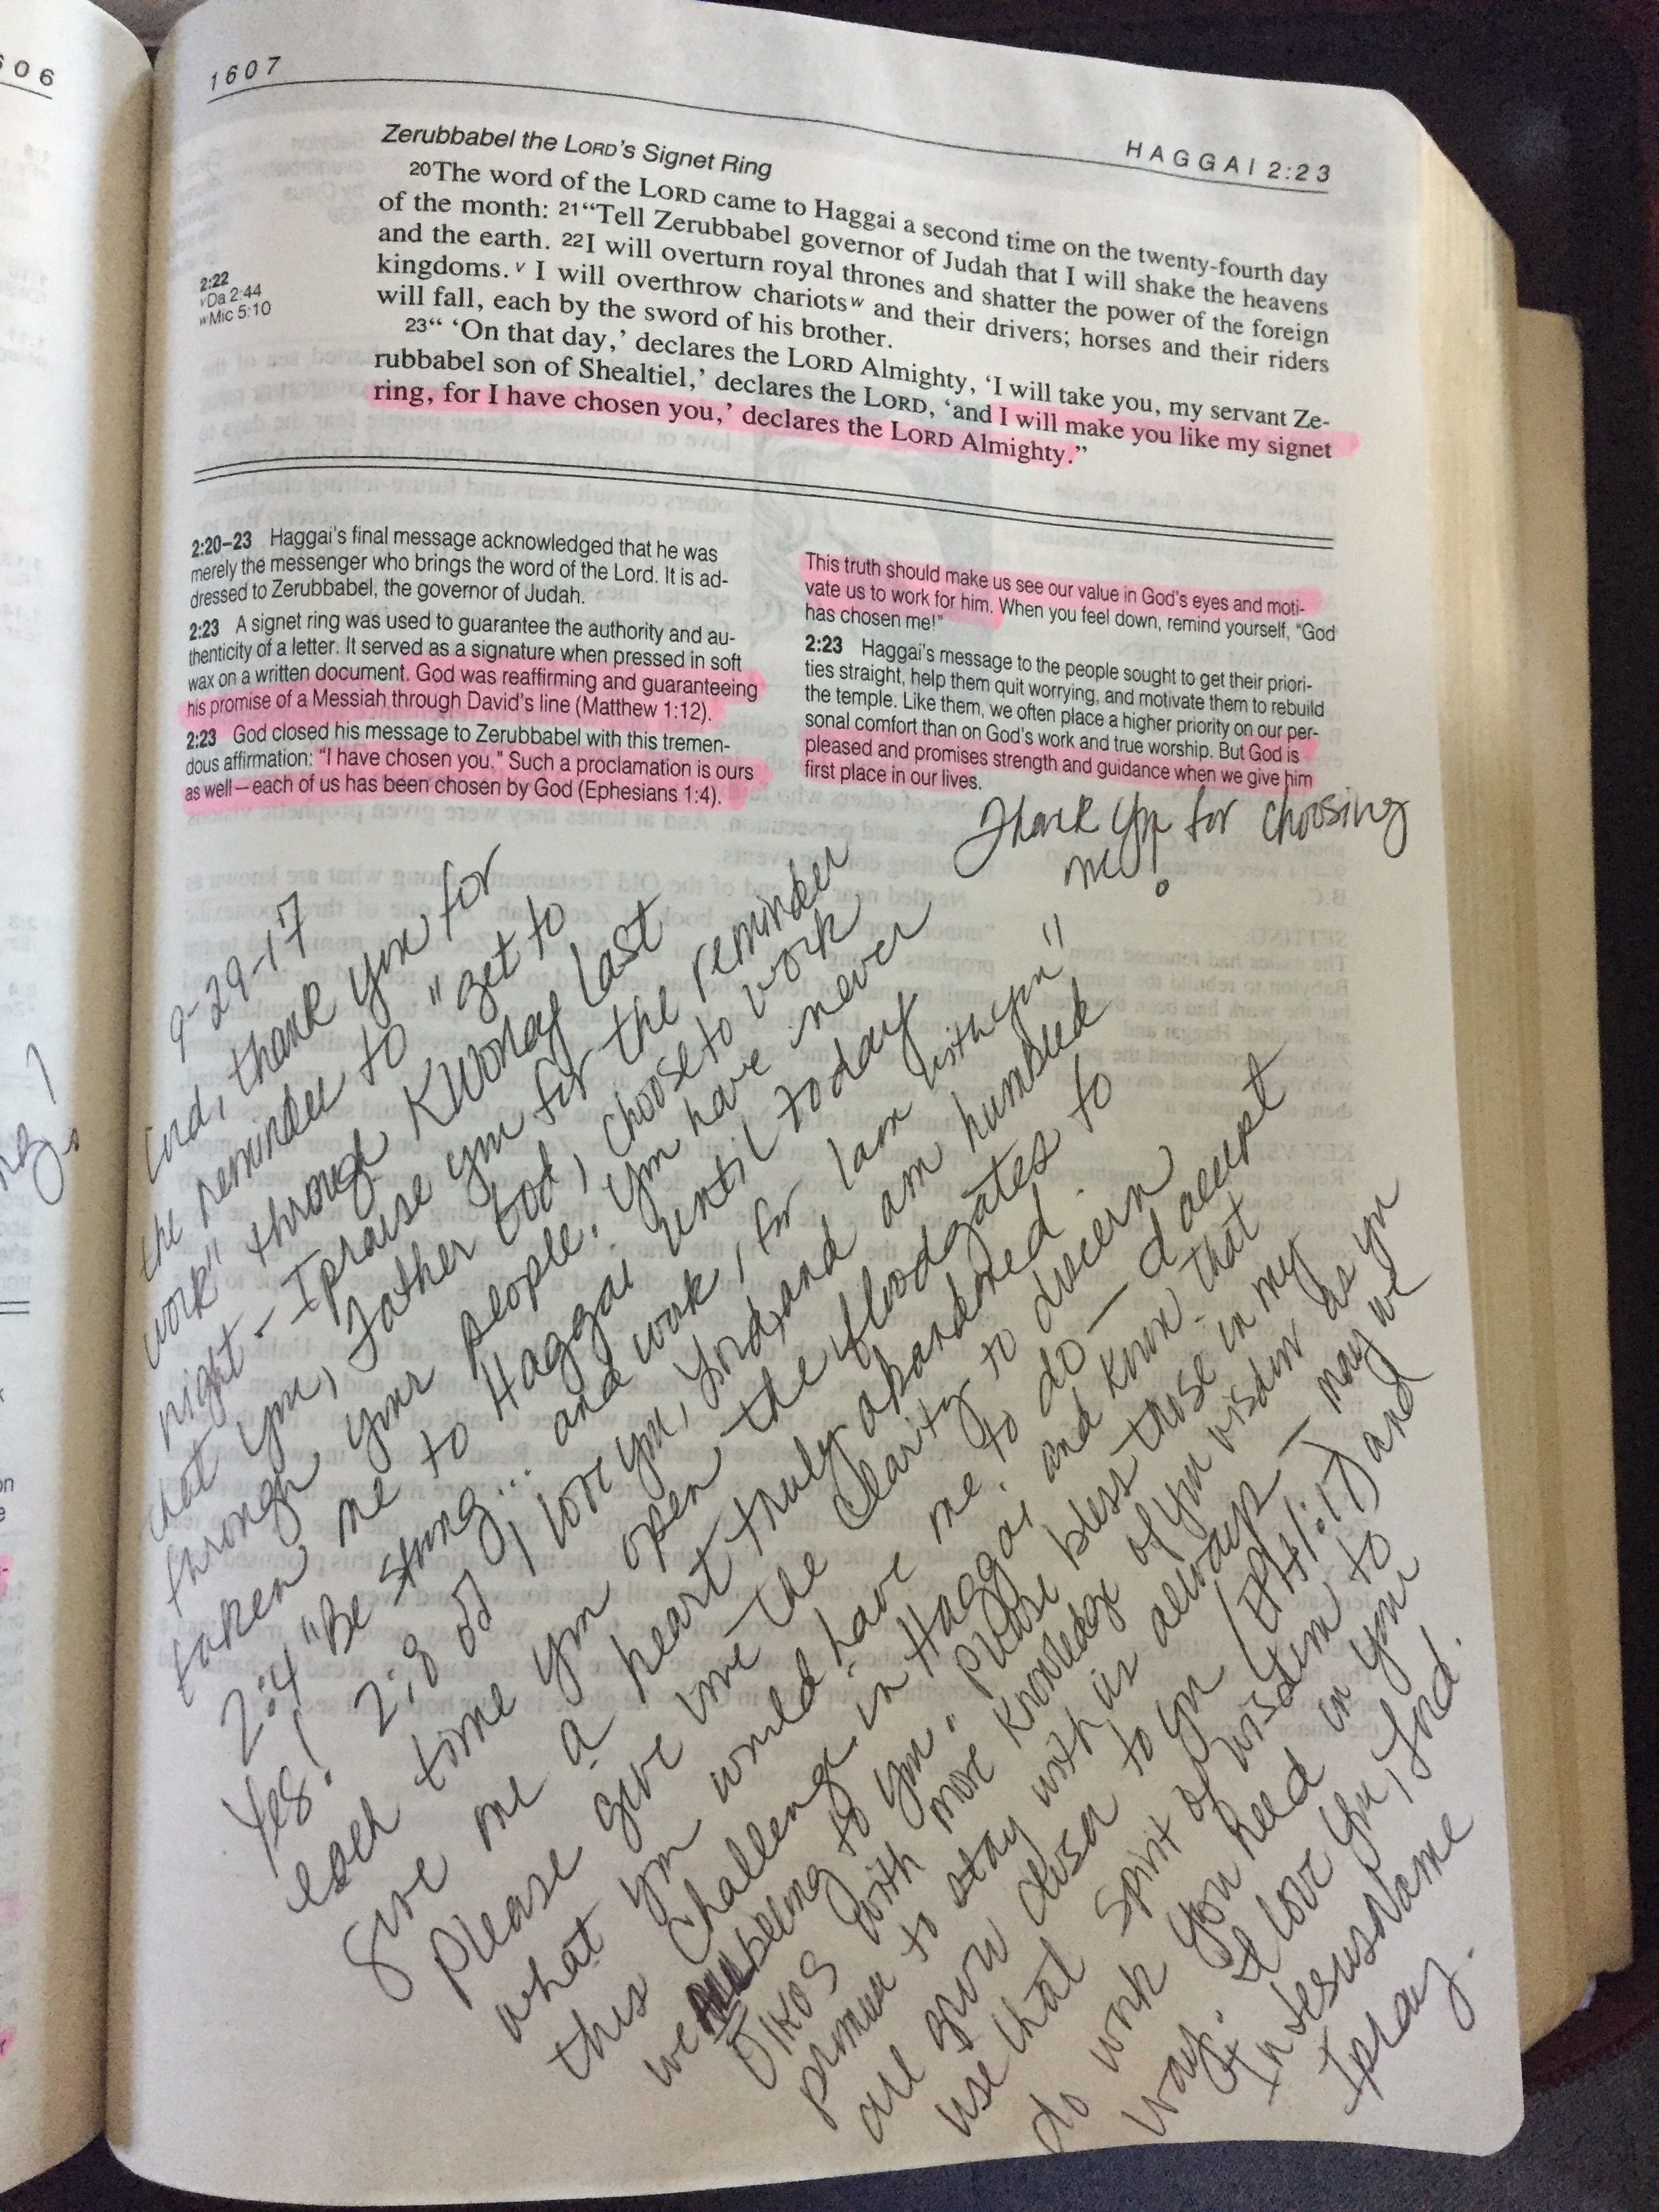 606
1607
HAGGAI 2:23
Zerubbabel the LORD's Signet Ring
20The word of the LORD came to Haggai a second time on the twenty-fourth day
of the month: 21“Tell Zerubbabel governor of Judah that I will shake the heavens
and the earth. 22I will overturn royal thrones and shatter the power of the foreign
kingdoms.v I will overthrow chariotsw and their drivers; horses and their riders
will fall, each by the sword of his brother.
23“ ‘On that day,’ declares the LORD Almighty, ‘I will take you, my servant Ze-
rubbabel son of Shealtiel,’ declares the LORD, ‘and I will make you like my signet
ring, for I have chosen you,’ declares the LORD Almighty.”
2:22
vDa 2:44
wMic 5:10
2:20–23 Haggai's final message acknowledged that he was
merely the messenger who brings the word of the Lord. It is ad-
dressed to Zerubbabel, the governor of Judah.
2:23 A signet ring was used to guarantee the authority and au-
thenticity of a letter. It served as a signature when pressed in soft
wax on a written document. God was reaffirming and guaranteeing
his promise of a Messiah through David's line (Matthew 1:12).
2:23 God closed his message to Zerubbabel with this tremen-
dous affirmation: “I have chosen you.” Such a proclamation is ours
as well—each of us has been chosen by God (Ephesians 1:4).
This truth should make us see our value in God's eyes and moti-
vate us to work for him. When you feel down, remind yourself, “God
has chosen me!”
2:23 Haggai's message to the people sought to get their priori-
ties straight, help them quit worrying, and motivate them to rebuild
the temple. Like them, we often place a higher priority on our per-
sonal comfort than on God's work and true worship. But God is
pleased and promises strength and guidance when we give him
first place in our lives.
Thank You for choosing
me!
9-29-17
Lord, thank you for
the reminder to "get to
work" through KWoney last
night - I praise you for the reminder
that you, Father God, choose to work
through your people. You have never
taken me to Haggai until today
2:4 "Be strong... and work, for I am with you"
Yes! 2:8 God, I love you, Lord, and am humbled
each time you open the floodgates to
give me a heart truly abandoned.
Please give me the clarity to discern
what you would have me to do — I accept
this challenge in Haggai and know that
we belong to you. Please bless those in my
OIKOS with more knowledge of your wisdom as you
promise to stay with us always — may we
all grow closer to you (EPH 1:17) and
use that Spirit of wisdom to
do work you need in your
way. I love You, Lord.
In Jesus Name
I pray.